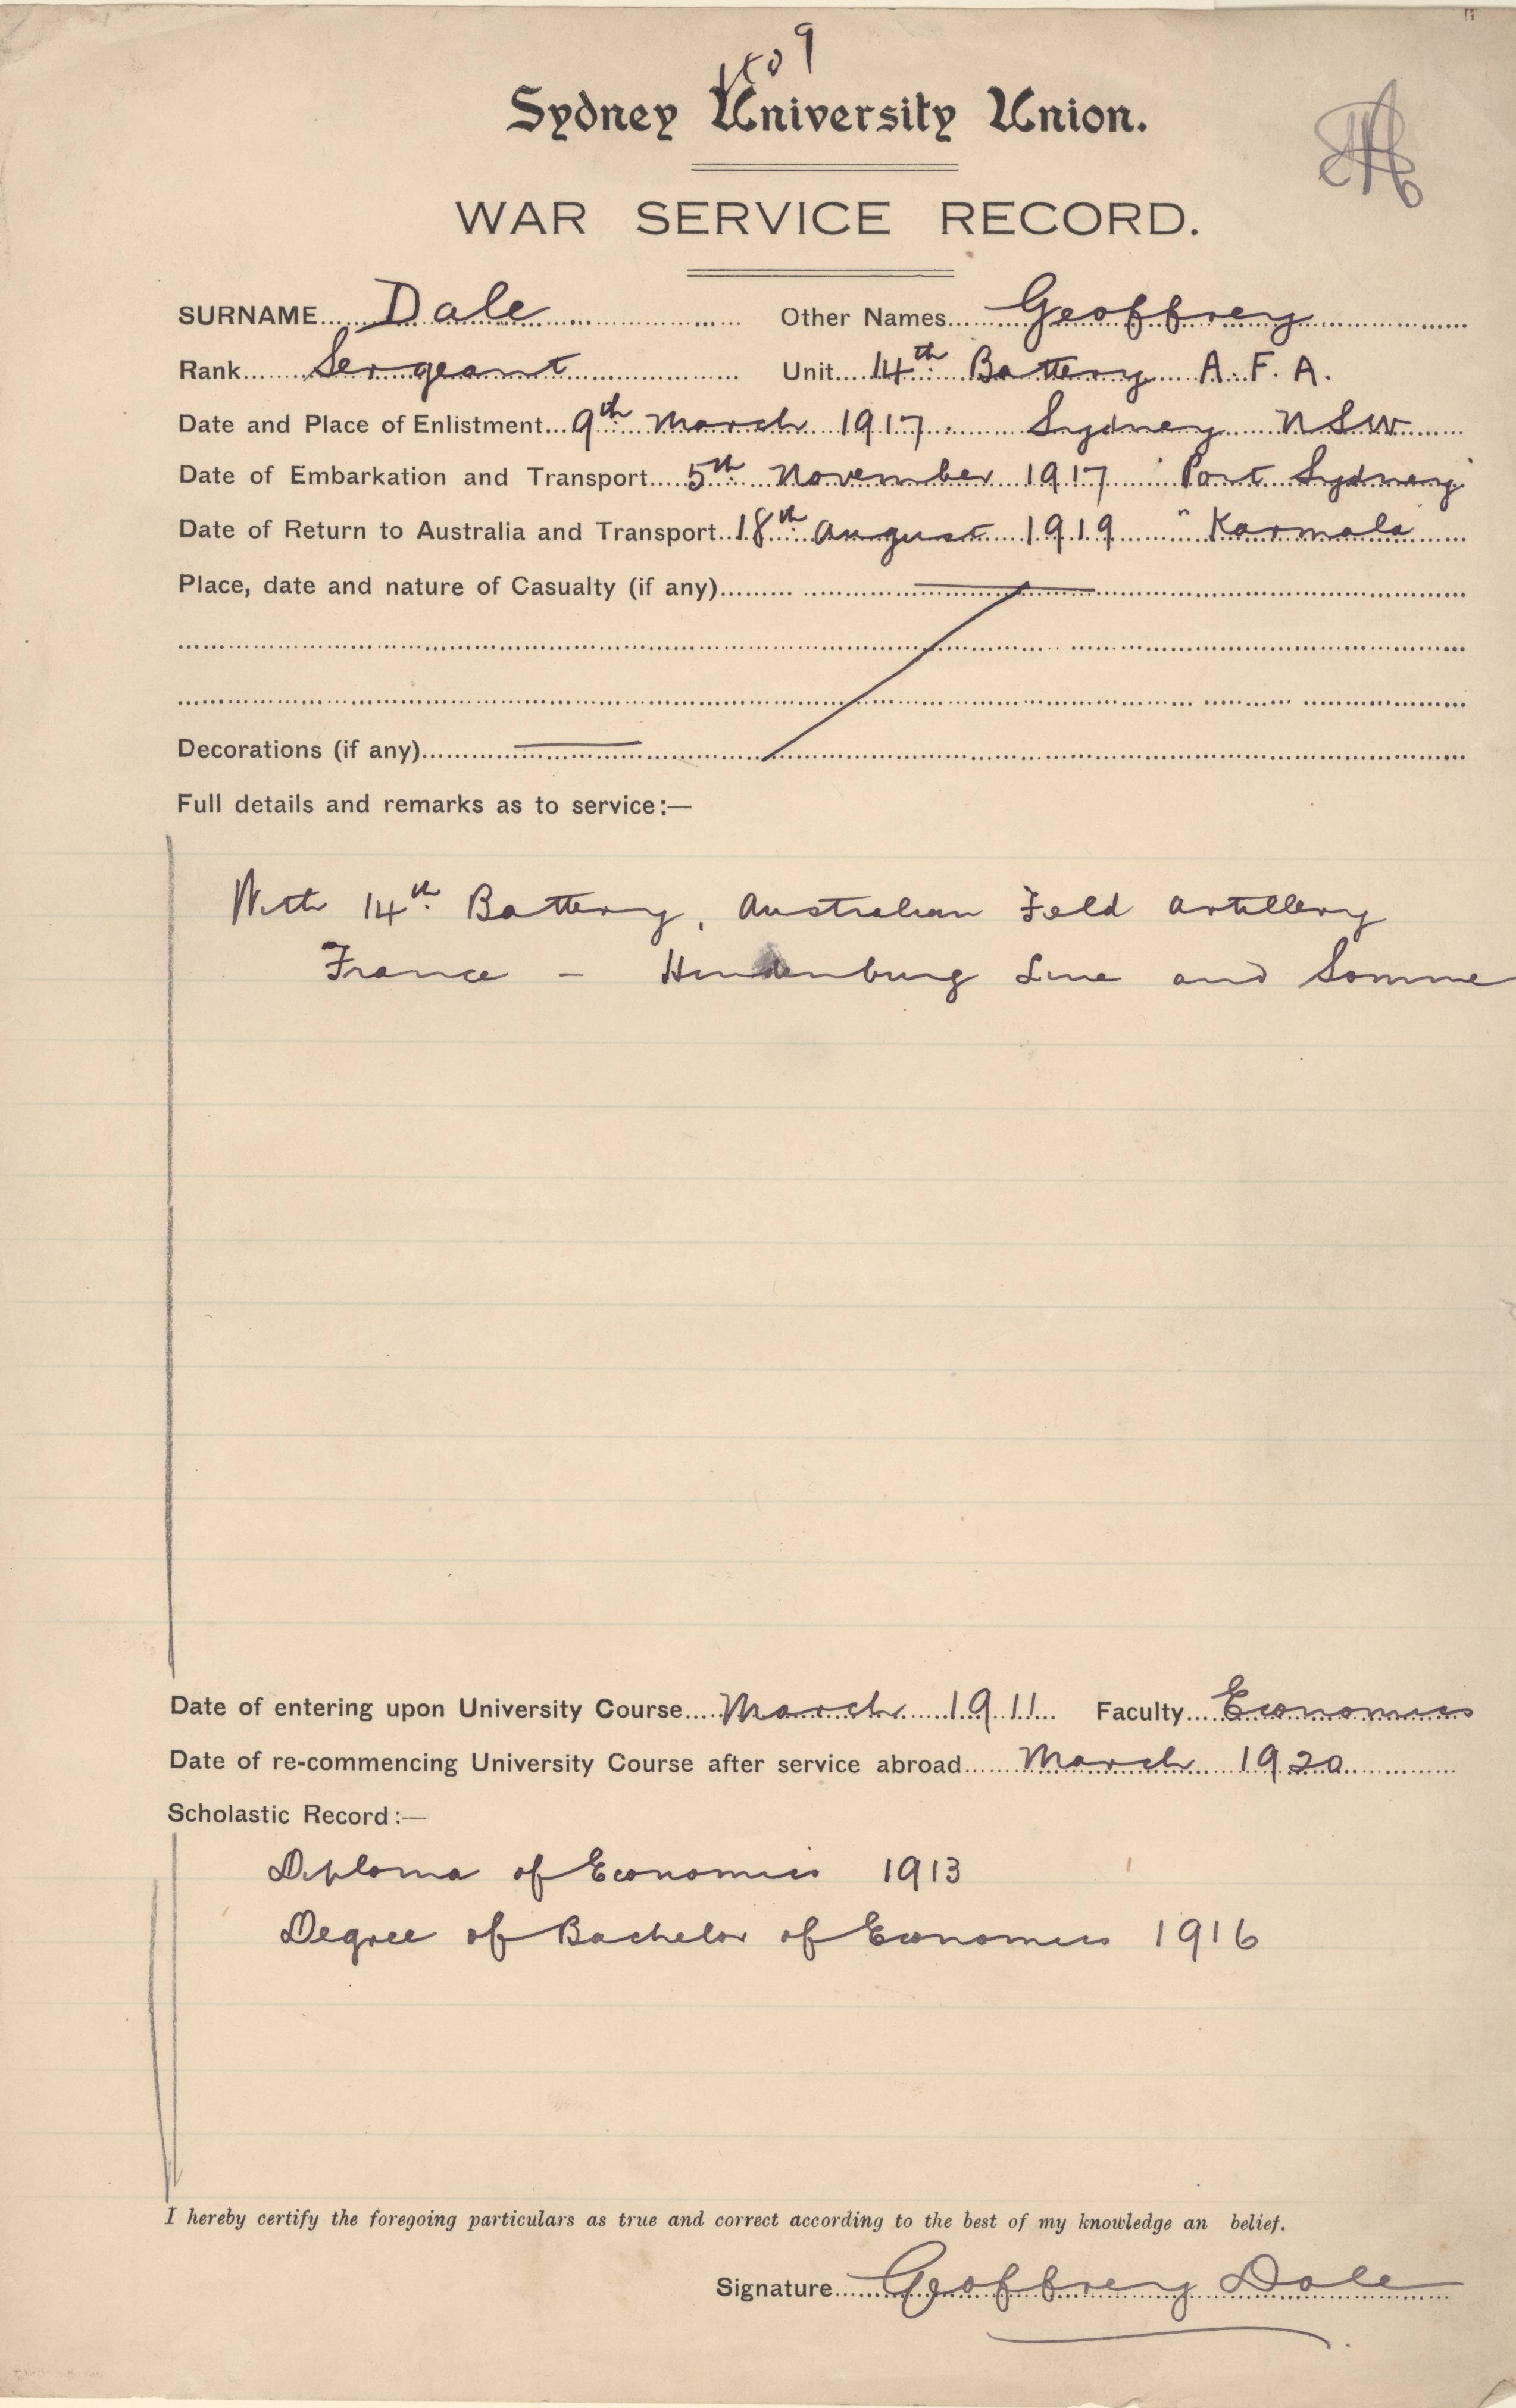 Sydney University Union.
WAR SERVICE RECORD.
SURNAME Dale Other Names Geoffrey
Rank Sergeant Unit 14th Battery A.F.A.
Date and Place of Enlistment 9th March 1917. Sydney NSW
Date of Embarkation and Transport 5th November 1917 "Port Sydney"
Date of Return to Australia and Transport 18th August 1919 "Karmala"
Place, date and nature of Casualty (if any)
Decorations (if any)
Full details and remarks as to service:—
With 14th Battery, Australian Field Artillery
France – Hindenburg Line and Somme
Date of entering upon University Course March 1911 Faculty Economics
Date of re-commencing University Course after service abroad March 1920
Scholastic Record:—
Diploma of Economics 1913
Degree of Bachelor of Economics 1916
I hereby certify the foregoing particulars as true and correct according to the best of my knowledge an belief.
Signature Geoffrey Dale